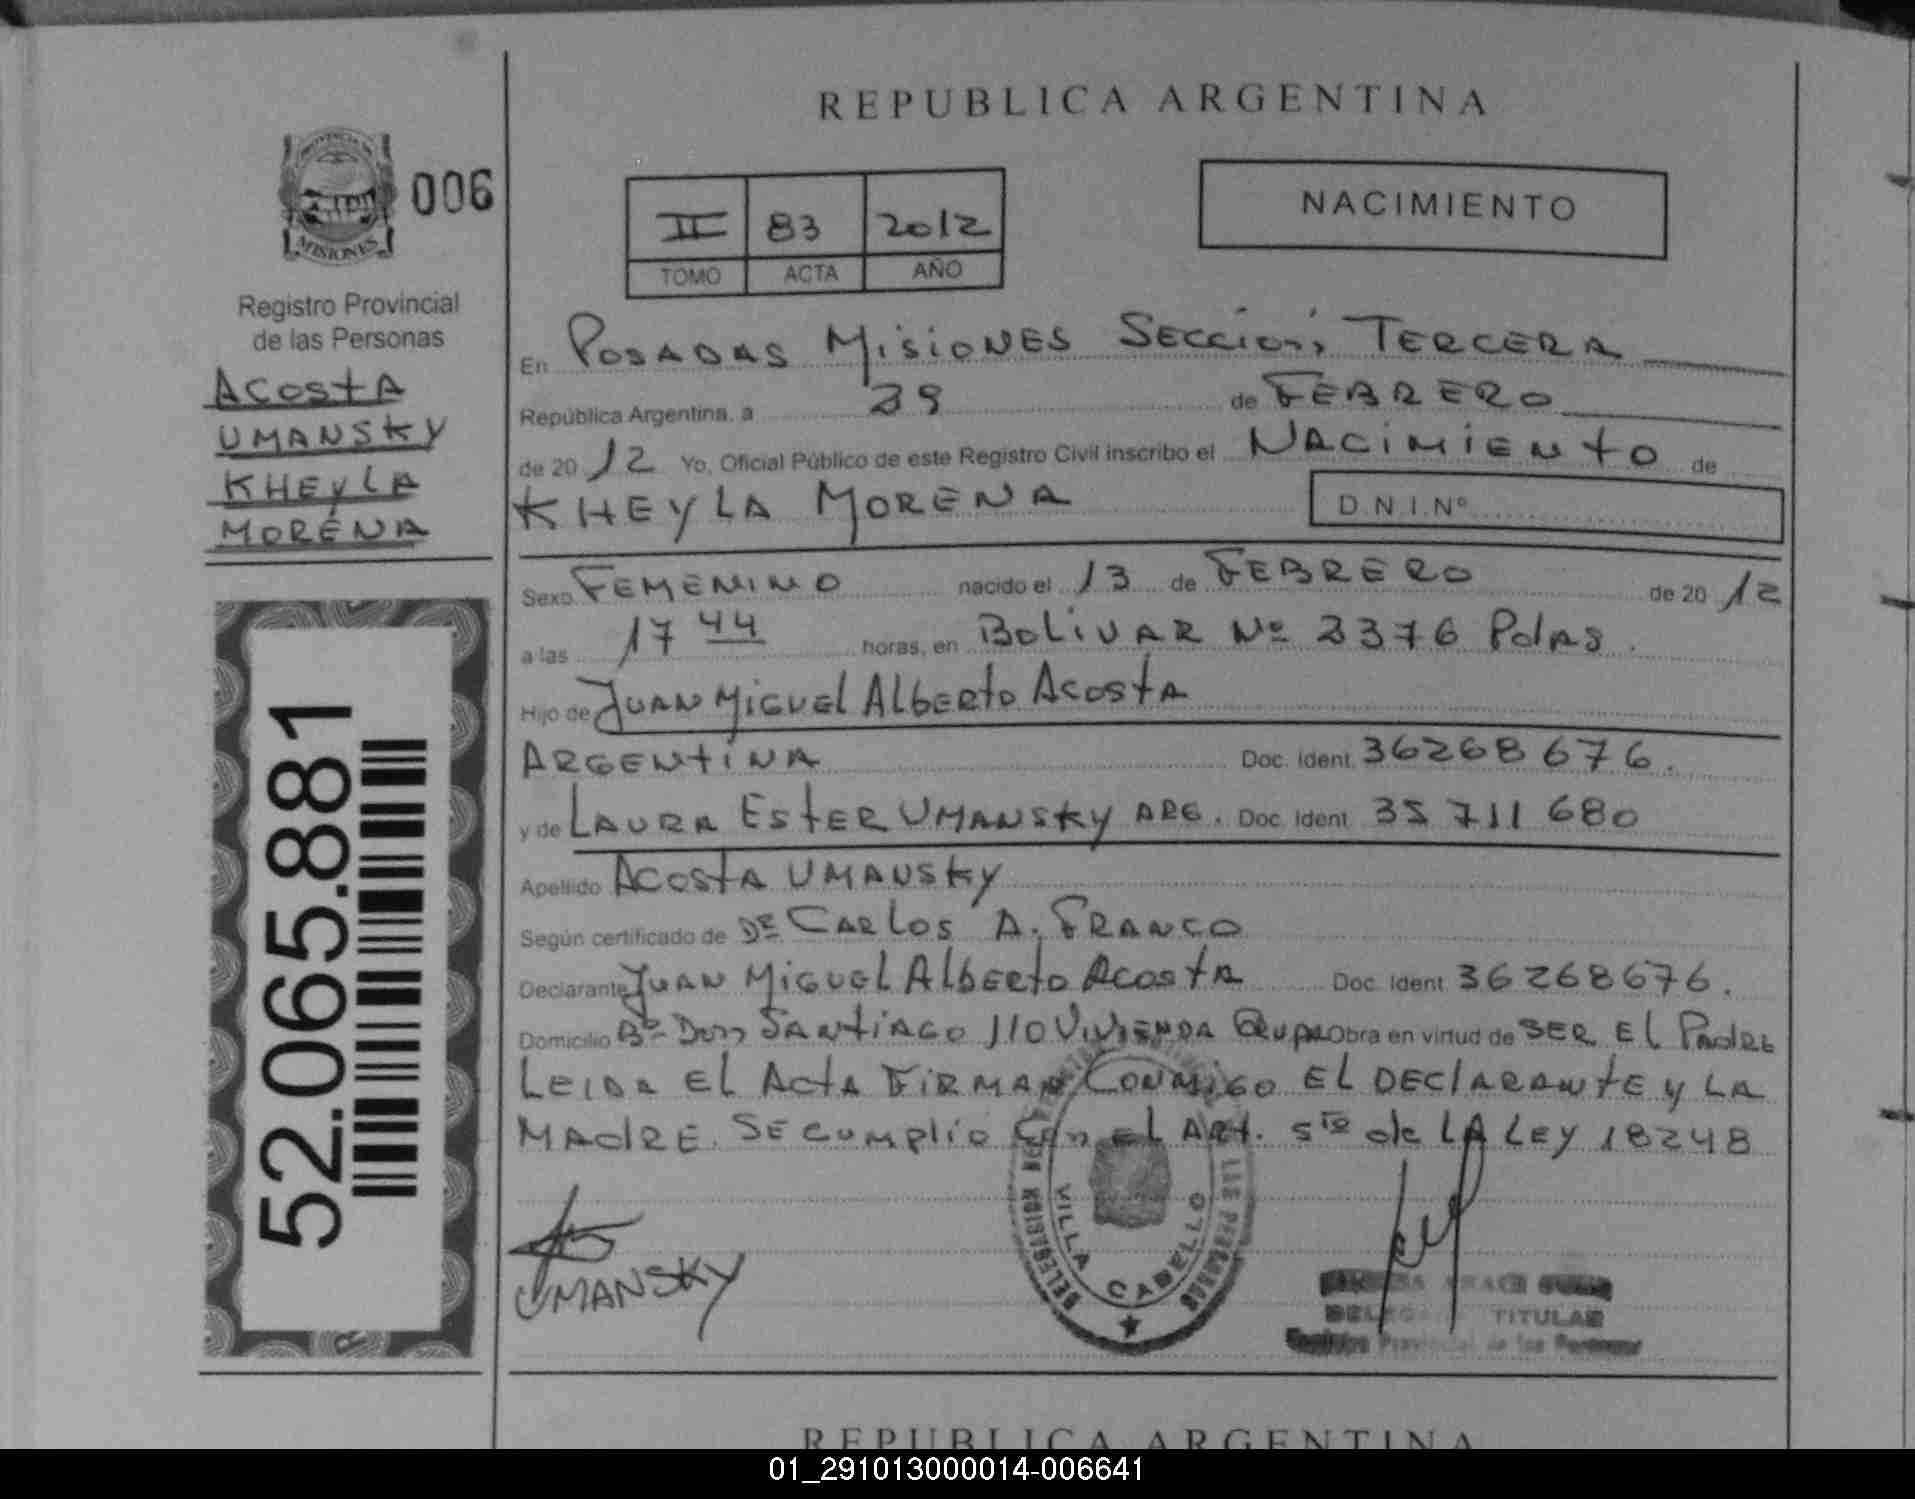 REPUBLICA ARGENTINA
MISIONES
006
Registro Provincial
de las Personas
ACOSTA
UMANSKY
KHEYLA
MORENA
52.065.881
II 83 2012
TOMO ACTA AÑO
NACIMIENTO
En POSADAS MISIONES SECCION TERCERA
República Argentina, a 29 de FEBRERO
de 2012 Yo, Oficial Público de este Registro Civil inscribo el NACIMIENTO de
KHEYLA MORENA D.N.I.Nº
Sexo FEMENINO nacido el 13 de FEBRERO de 2012
a las 17 44 horas, en BOLIVAR Nº 2376 Pdas.
Hijo de JUAN MIGUEL ALBERTO ACOSTA
ARGENTINA Doc. Ident. 36268676.
y de LAURA ESTER UMANSKY ARG. Doc. Ident. 35711680
Apellido ACOSTA UMANSKY
Según certificado de DR CARLOS A. FRANCO
Declarante JUAN MIGUEL ALBERTO ACOSTA Doc. Ident. 36268676.
Domicilio Bº DON SANTIAGO 110 VIVIENDA GRUPA Obra en virtud de SER EL PADRE
LEIDA EL ACTA FIRMAN CONMIGO EL DECLARANTE Y LA
MADRE. SE CUMPLIO CON EL ART. 5to de LA LEY 18248
UMANSKY
VILLA CABELLO
TITULAR
Provincial de las Personas
REPUBLICA ARGENTINA
01_291013000014-006641